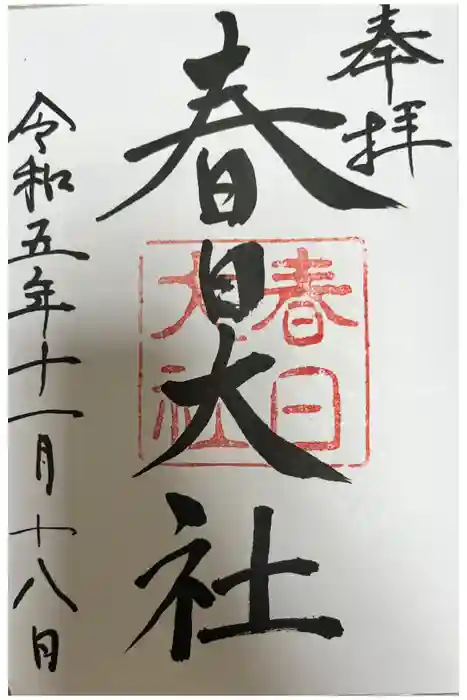 奉拝
春日大社
春日
大社
令和五年十一月十八日